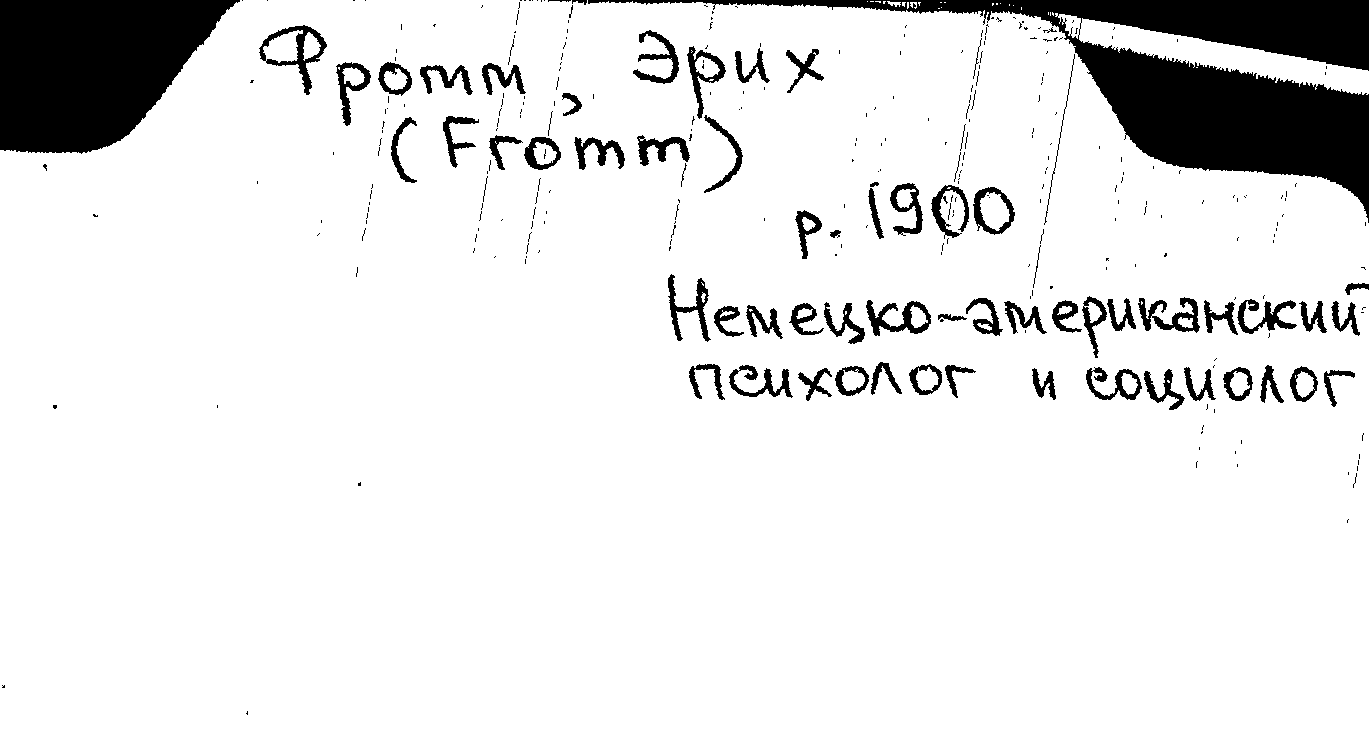 Фромм, Эрих
(Fromm)
р. 1900
Немецко-американский
психолог и социолог